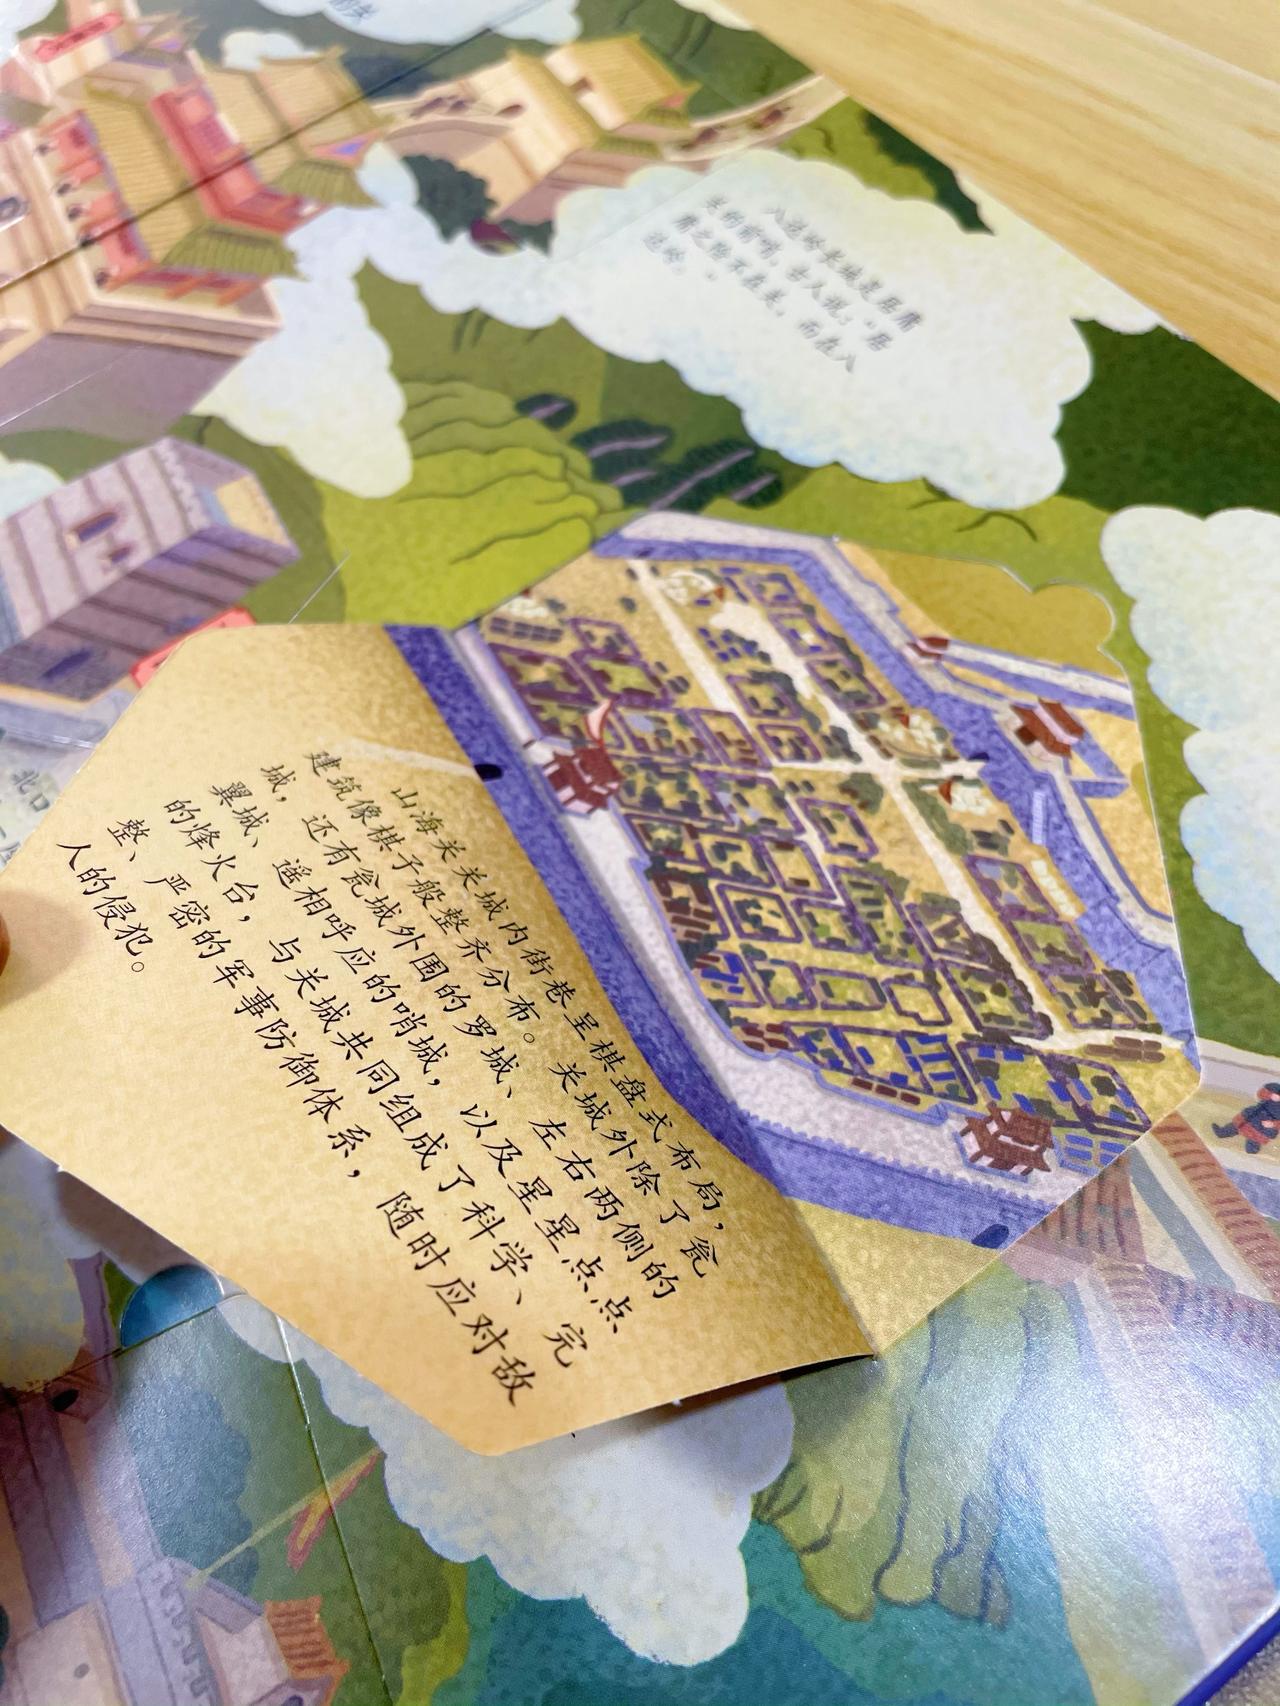 八达岭长城是居庸
关的前哨，古人说："居
庸之险不在关，而在八
达岭。"
山海关关城内街巷呈棋盘式布局，
建筑像棋子般整齐分布。关城外除了瓮
城，还有瓮城外围的罗城、左右两侧的
翼城、遥相呼应的哨城，以及星星点点
的烽火台，与关城共同组成了科学、完
整、严密的军事防御体系，随时应对敌
人的侵犯。
北口